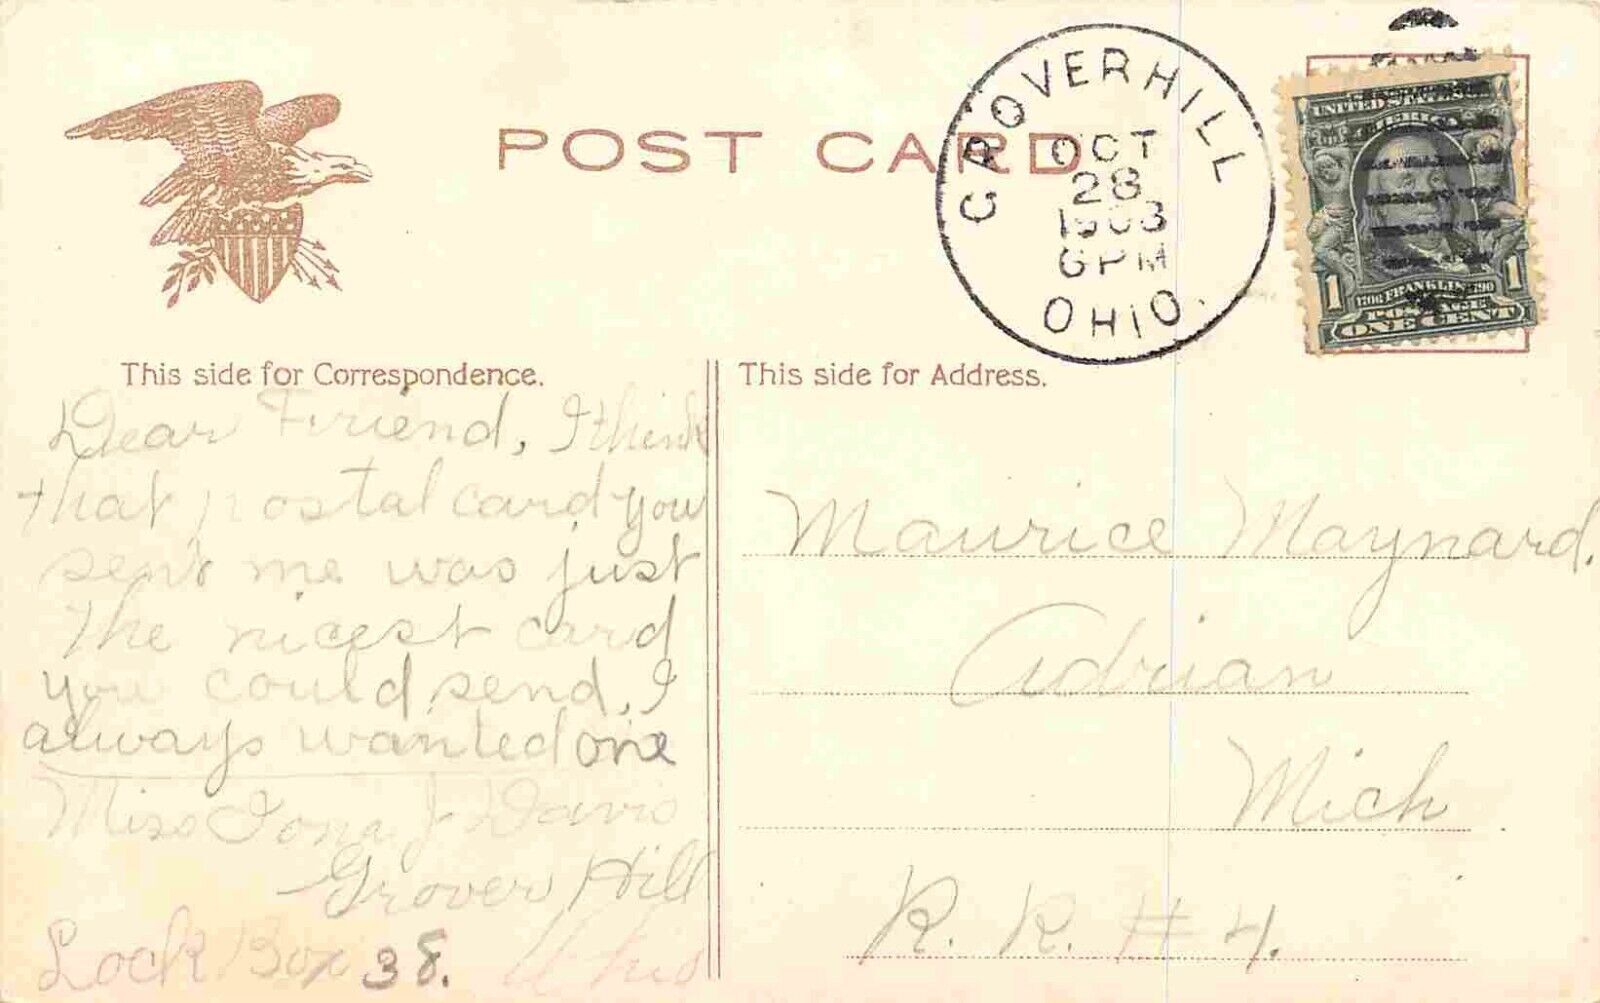 POST CARD
GROVERHILL
OCT
28
1908
6 PM
OHIO.
UNITED STATES OF
AMERICA
1 1706 FRANKLIN 1790 1
POSTAGE
ONE CENT
This side for Correspondence.
Dear Friend, I think
that postal card you
sent me was just
the nicest card
you could send, I
always wanted one
Miss Iona J Davis
Grover Hill
Lock Box 38. Ohio
This side for Address.
Maurice Maynard.
Adrian
Mich
R. R. # 4.